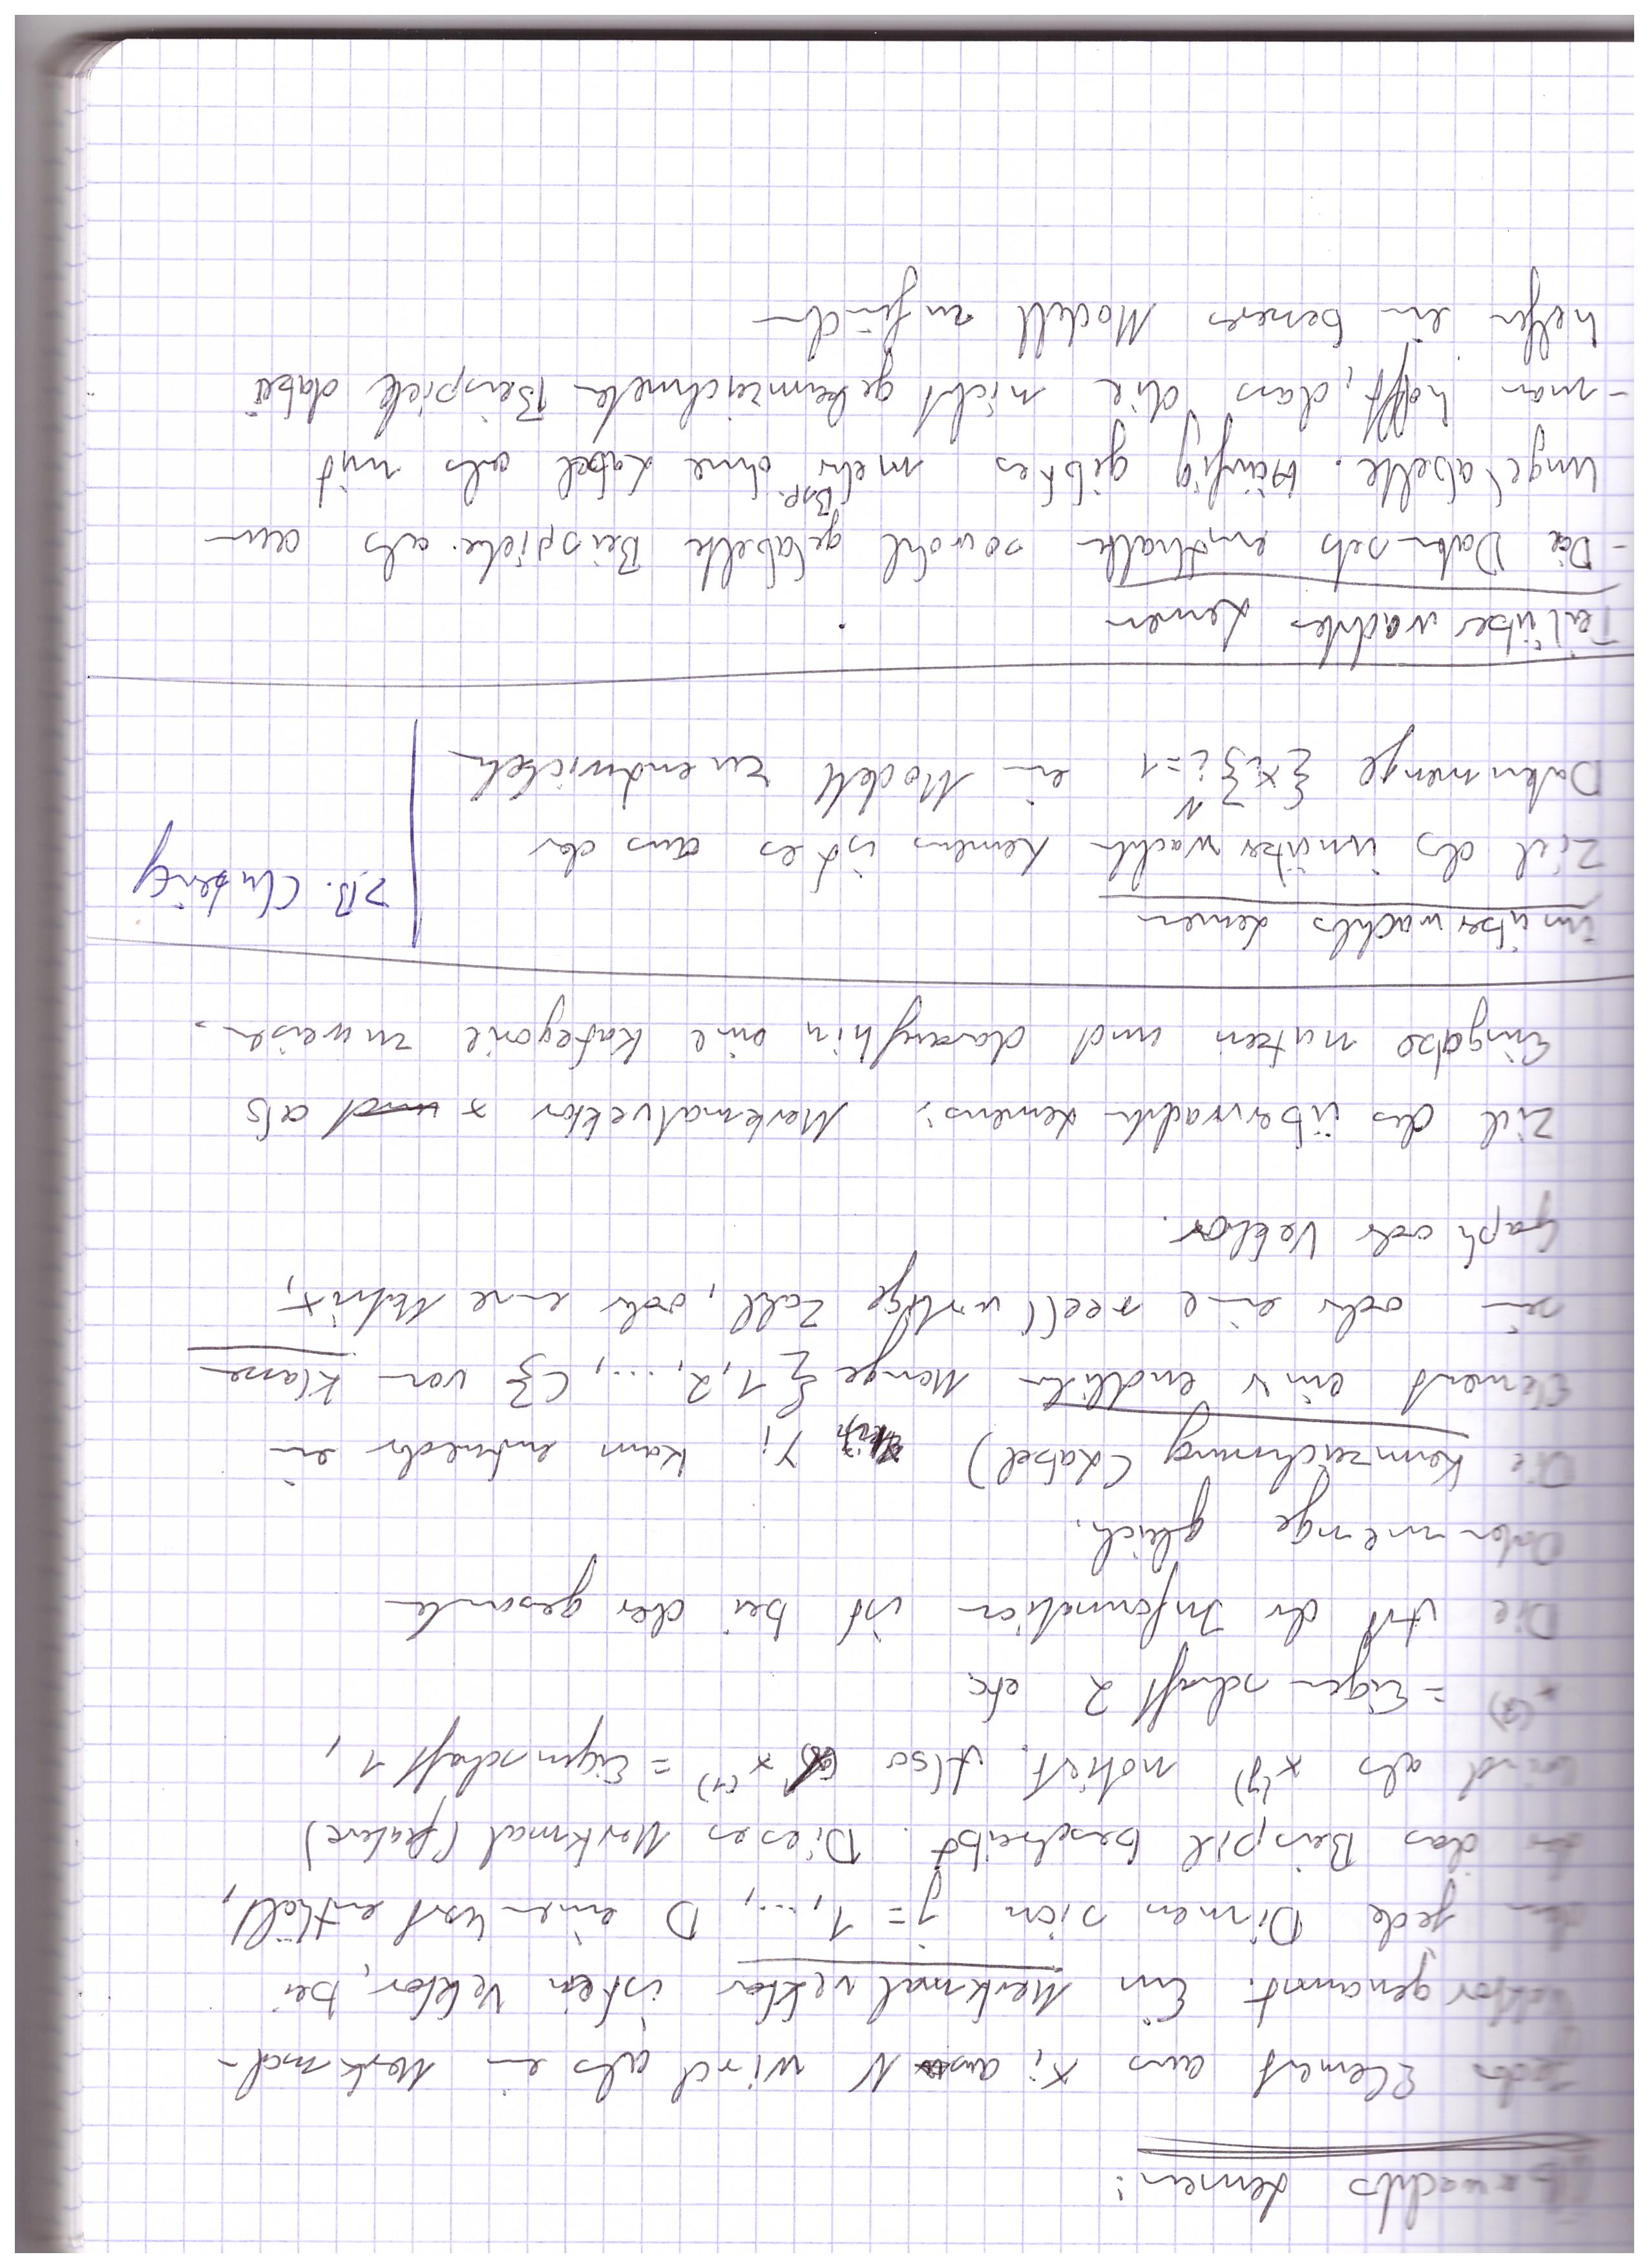 Überwachtes Lernen:
Jedes Element aus xi aus N wird als ein Merkmal-
vektor genannt. Ein Merkmalvektor ist ein Vektor, bei
dem jede Dimension j = 1, ..., D einen Wert enthält,
der das Beispiel beschreibt. Dieses Merkmal (feature)
wird als x(j) notiert. Also x(1) = Eigenschaft 1,
x(2) = Eigenschaft 2 etc
Die Art der Information ist bei der gesamten
Datenmenge gleich.
Die Kennzeichnung (Label) yi kann entweder ein
Element einer endlichen Menge {1, 2, ..., C} von Klassen
sein oder eine reellwertige Zahl, oder eine Matrix,
Graph oder Vektor.
Ziel des überwachten Lernens: Merkmalvektor x als
Eingabe nutzen und daraufhin eine Kategorie zuweisen.
Unüberwachtes Lernen
Ziel des unüberwachten Lernens ist es aus der
Datenmenge {xi}N i=1 ein Modell zu endwickeln
z.B. Clustering
Teilüberwachtes Lernen
- Die Datensets enthalten sowohl gelabelte Beispiele als auch
ungelabelte. Häufig gibt es mehr Bsp. ohne Label als mit
- man hofft, dass die nicht gekennzeichneten Beispiele dabei
helfen ein besseres Modell zu finden